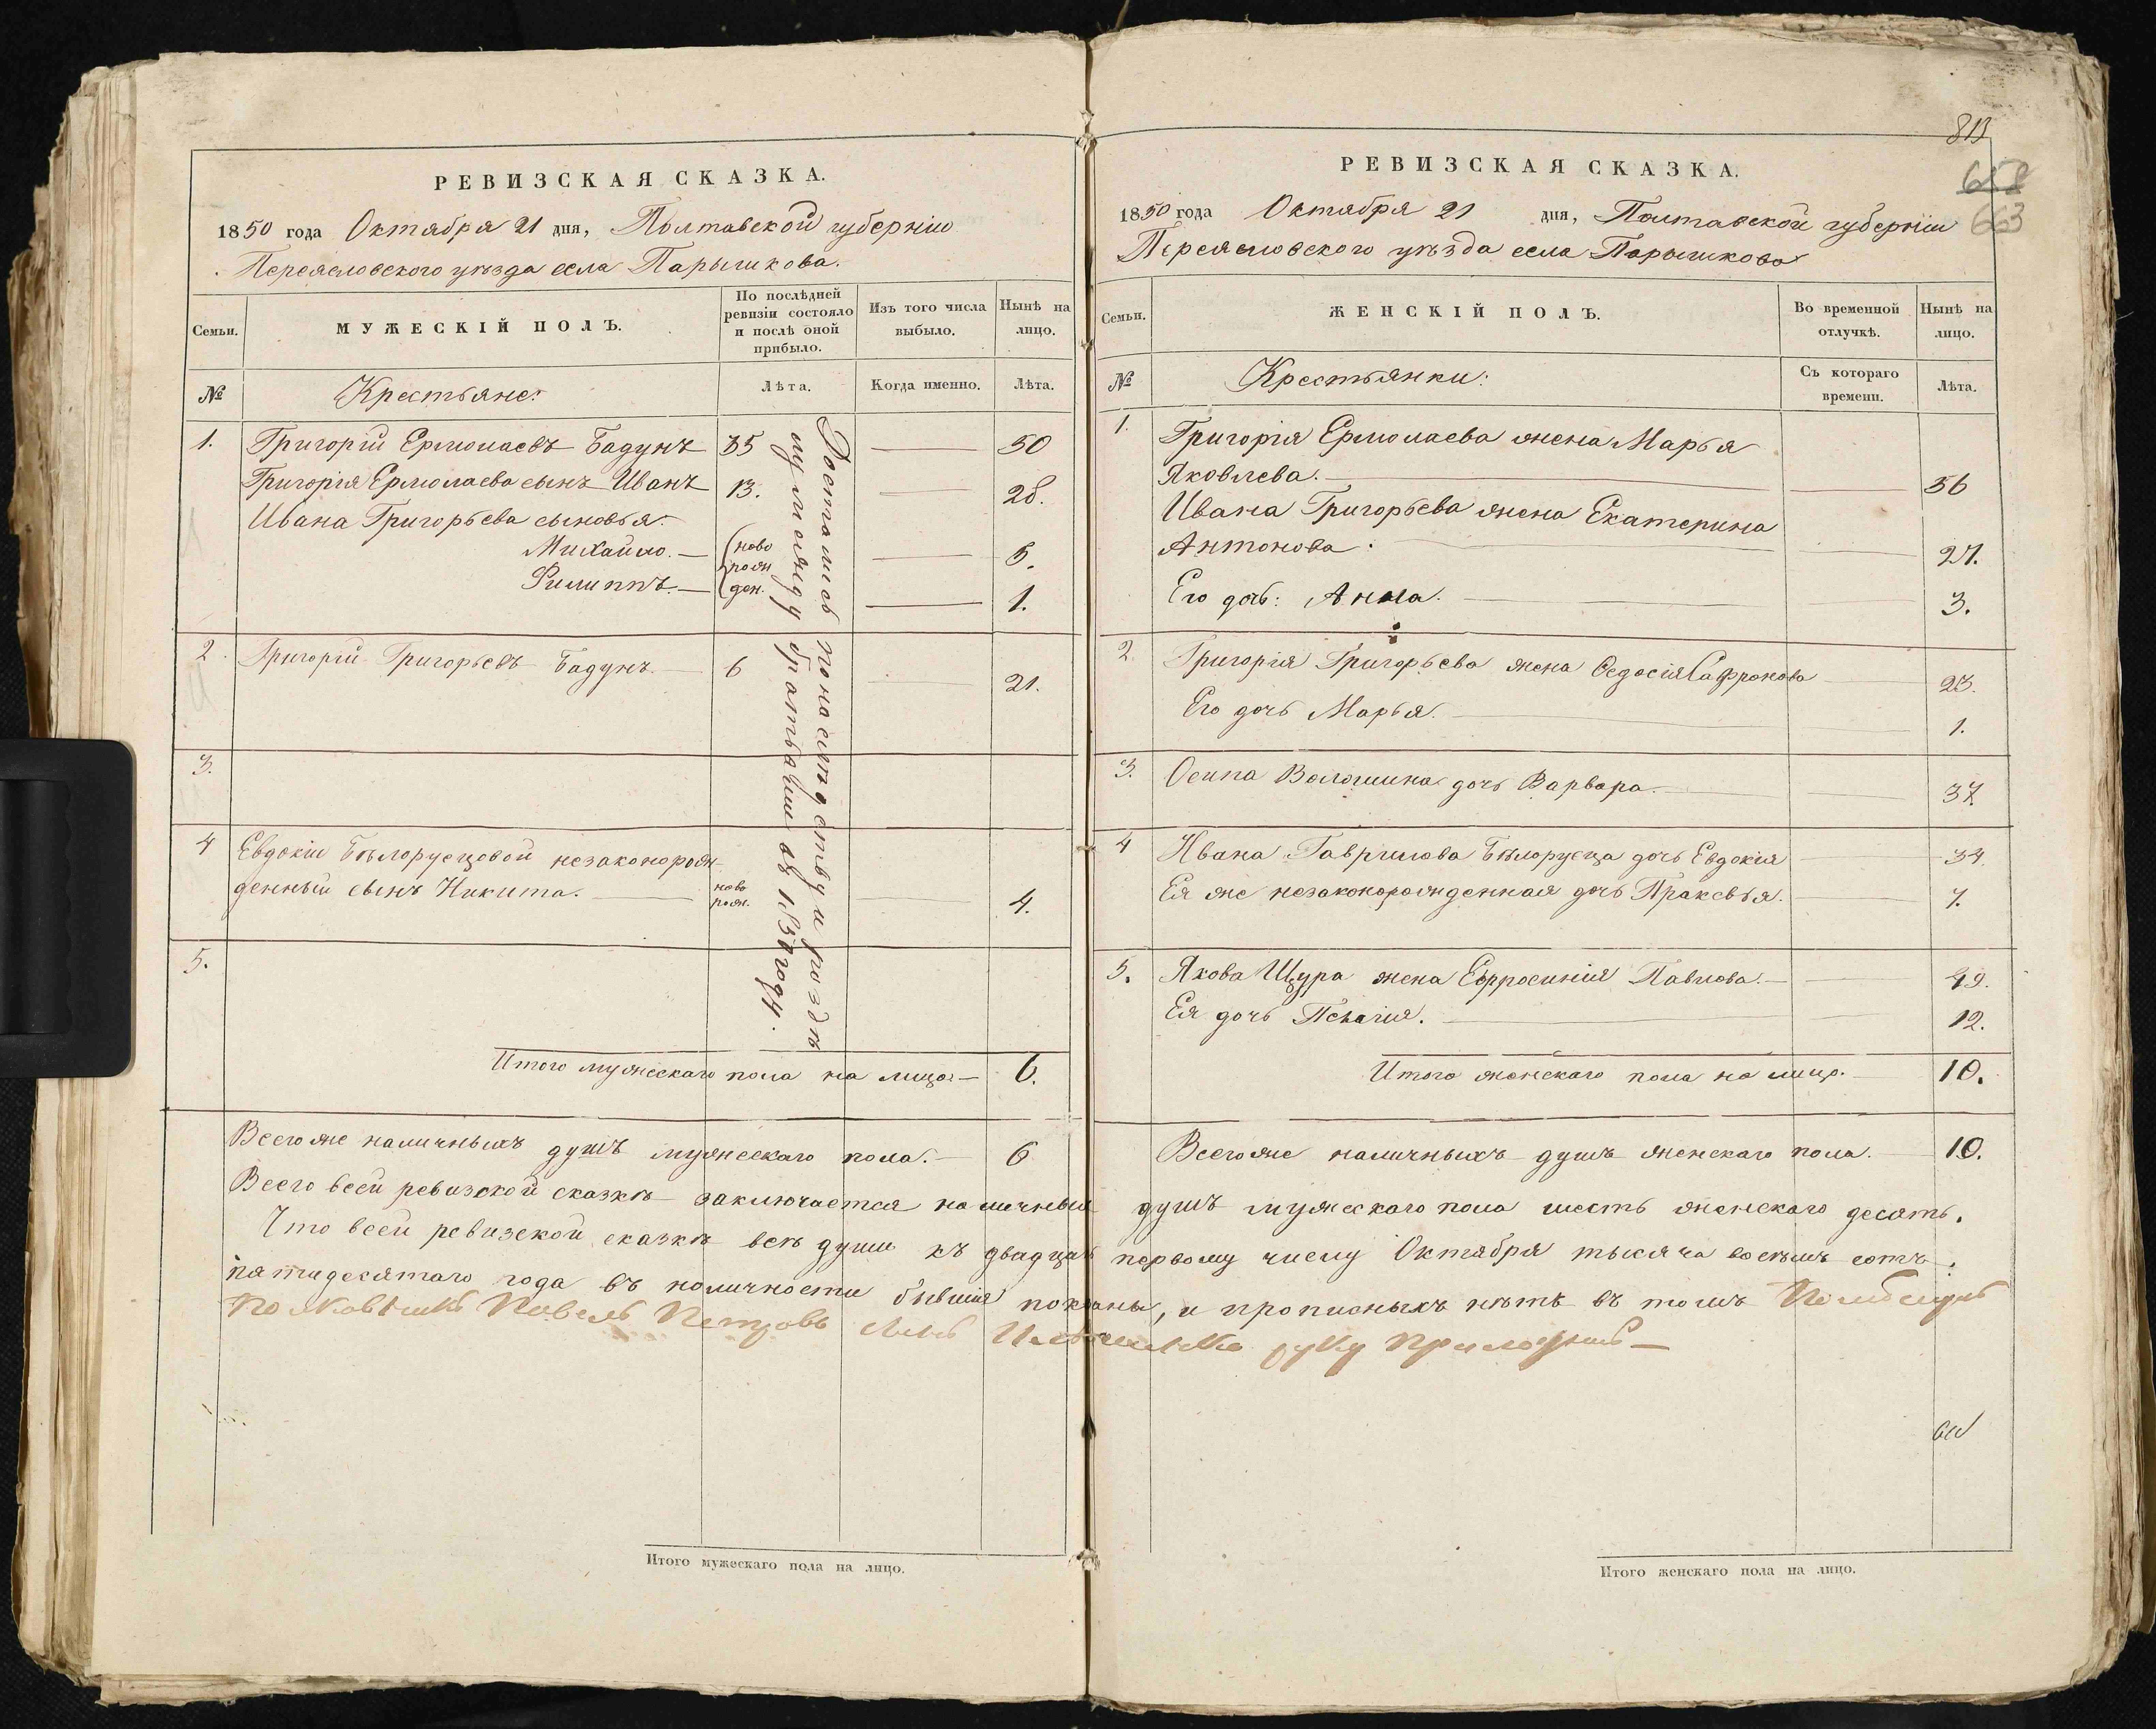 РЕВИЗСКАЯ СКАЗКА.
1850 года Октября 21 дня, Полтавской губерніи
Переясловского уѣзда села Парышкова.
Семьи.
МУЖЕСКІЙ ПОЛЪ.
По послѣдней ревизіи состояло и послѣ оной прибыло.
Изъ того числа выбыло.
Нынѣ на лицо.
№
Крестьяне:
Лѣта.
Когда именно.
Лѣта.
1. Григорій Ермолаевъ Бадунъ 35 — 50
Григорія Ермолаева сынъ Иванъ 13. — 28.
Ивана Григорьева сыновья:
Михайло. — ново — 5.
рож
Филиппъ. — ден. — 1.
Достались по наслѣдству и раздѣ
лу между братьями въ 1830 году.
2. Григорій Григорьевъ Бадунъ. — 6 — 21.
3.
4 Евдокіи Бѣлорусцовой незаконорож-
денный сынъ Никита. — ново рож. — 4.
5.
Итого мужескаго пола на лицо — 6.
Всего же наличныхъ душъ мужескаго пола. — 6
813
658
663
РЕВИЗСКАЯ СКАЗКА.
1850 года Октября 21 дня, Полтавской губерніи
Переясловского уѣзда села Парышкова
Семьи.
ЖЕНСКІЙ ПОЛЪ.
Во временной отлучкѣ.
Нынѣ на лицо.
№
Крестьянки:
Съ котораго времени.
Лѣта.
1. Григорія Ермолаева жена Марья
Яковлева. — 56
Ивана Григорьева жена Екатерина
Антонова. — 27.
Его дочь: Анна. — 3.
2. Григорія Григорьева жена Ѳедосія Сафронова — 23.
Его дочь Марья. — 1.
3. Осипа Волошина дочь Варвара. — 37.
4 Ивана Гаврилова Бѣлорусца дочь Евдокія — 34.
Ея же незаконорожденная дочь Праксвья. — 7.
5. Якова Щура жена Ефросинія Павлова. — 49.
Ея дочь Пелагія. — 12.
Итого женскаго пола на лицо. — 10.
Всего же наличныхъ душъ женскаго пола. — 10.
Всего всей ревизской сказкѣ заключается наличныхъ душъ мужескаго пола шесть женскаго десять.
Что всей ревизской сказкѣ всѣ души къ двадцать первому числу Октября тысяча восемь сотъ
пятидесятаго года въ наличности бывшія показаны, и прописныхъ нѣтъ въ томъ
Полковникъ Павелъ Петровъ сынъ руку приложилъ —
Итого мужескаго пола на лицо.
Итого женскаго пола на лицо.